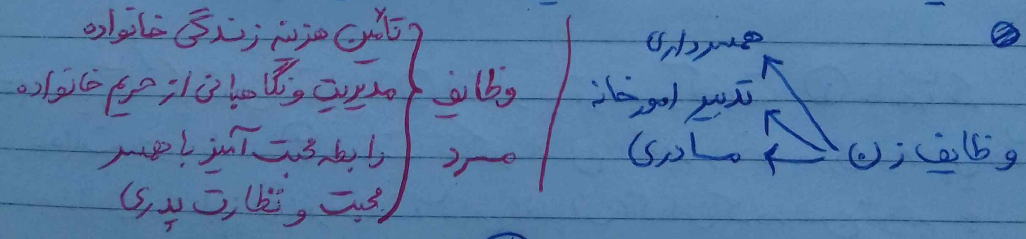 وظایف زن
همسرداری
تدبیر امور خانه
مادری
وظایف مرد
تأمین هزینه زندگی خانواده
مدیریت و نگاهبانی از حریم خانواده
رابطه محبت آمیز با همسر
محبت و نظارت پدری